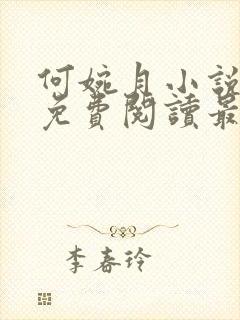 何婉月小說
免費閱讀最
李春玲